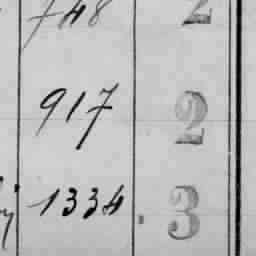 748 2
917 2
1334 . 3